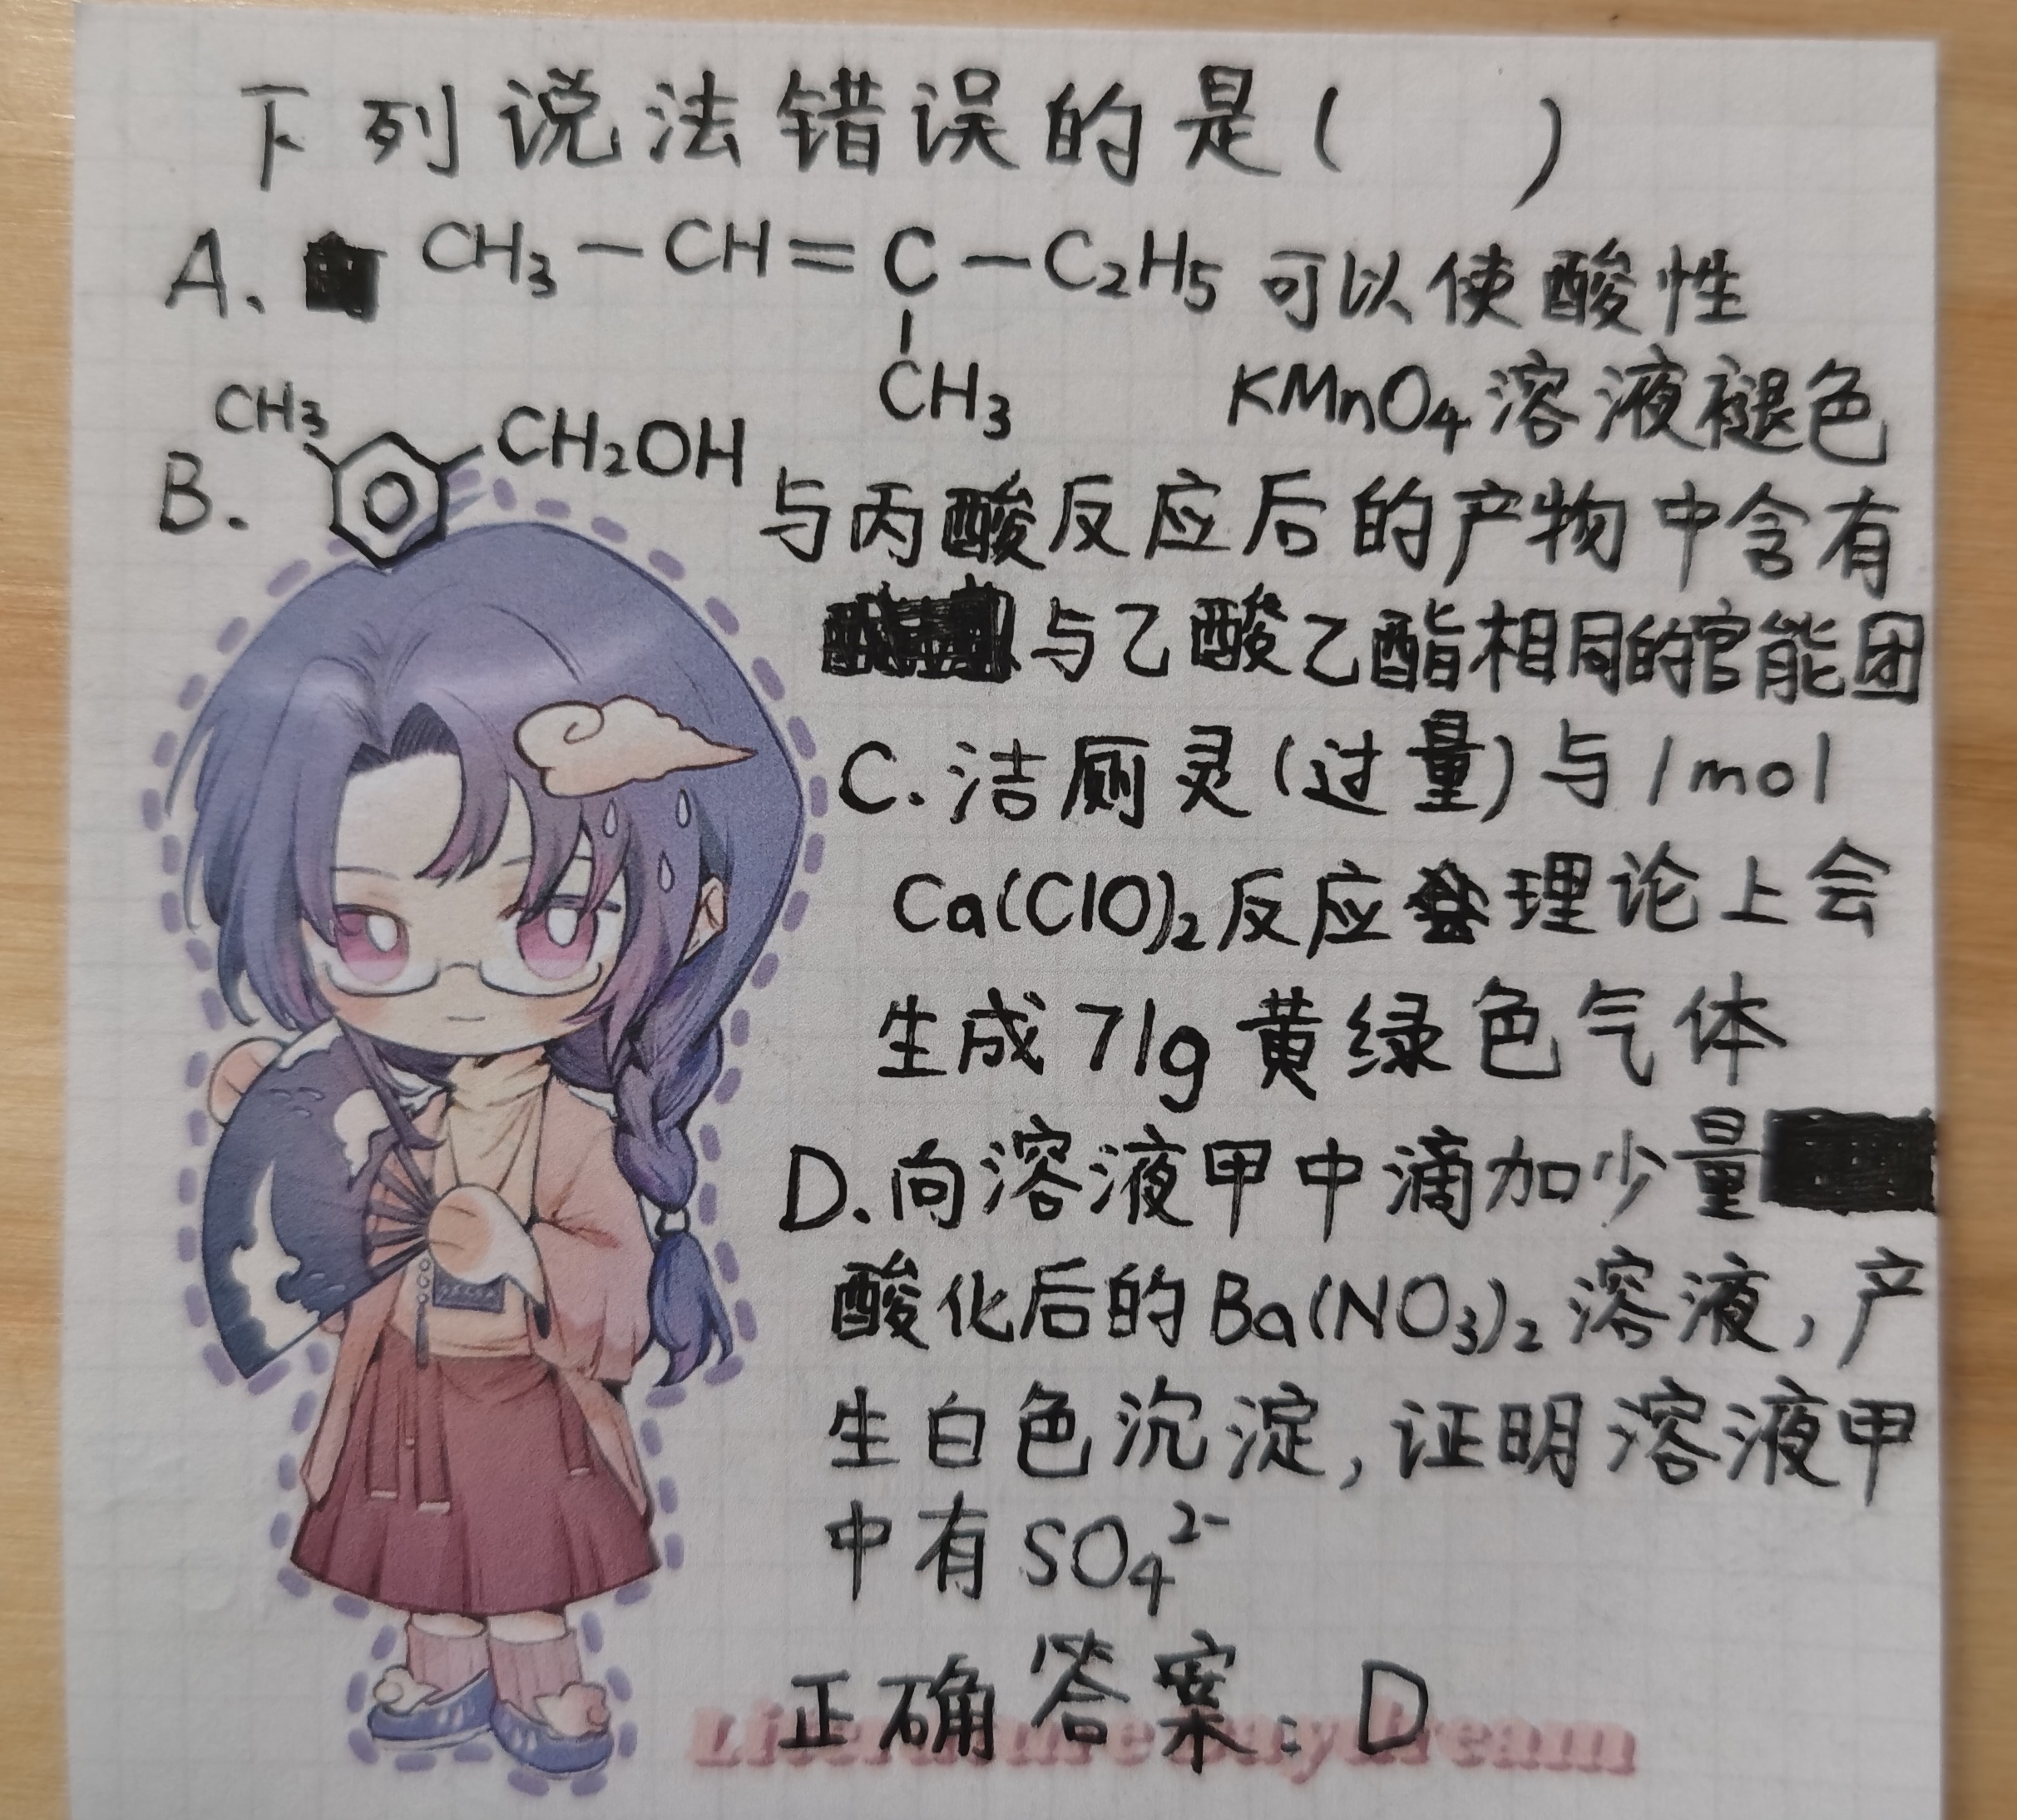 下列说法错误的是( )
A. CH₃-CH=C-C₂H₅可以使酸性
CH₃ KMnO₄溶液褪色
B. CH₃ CH₂OH
与丙酸反应后的产物中含有
与乙酸乙酯相同的官能团
C.洁厕灵(过量)与1mol
Ca(ClO)₂反应理论上会
生成71g黄绿色气体
D.向溶液甲中滴加少量
酸化后的Ba(NO₃)₂溶液,产
生白色沉淀,证明溶液甲
中有SO₄²⁻
正确答案:D
Literature Daydream